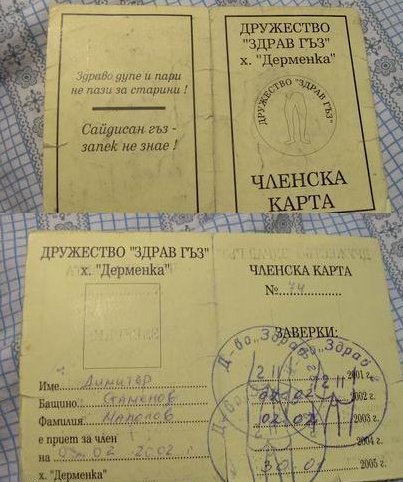 Здраво дупе и пари
не пази за старини !
Сайдисан гъз -
запек не знае !
ДРУЖЕСТВО
"ЗДРАВ ГЪЗ"
х. "Дерменка"
ДРУЖЕСТВО "ЗДРАВ ГЪЗ"
ЧЛЕНСКА
КАРТА
ДРУЖЕСТВО "ЗДРАВ ГЪЗ"
х. "Дерменка"
Име Димитър
Бащино Стаменов
Фамилия
е приет за член
на 02 2002
х. "Дерменка"
ЧЛЕНСКА КАРТА
№ 74
ЗАВЕРКИ:
Д-во "Здрав
2001 г.
2002 г.
02 02 2003 г.
2004 г.
2005 г.